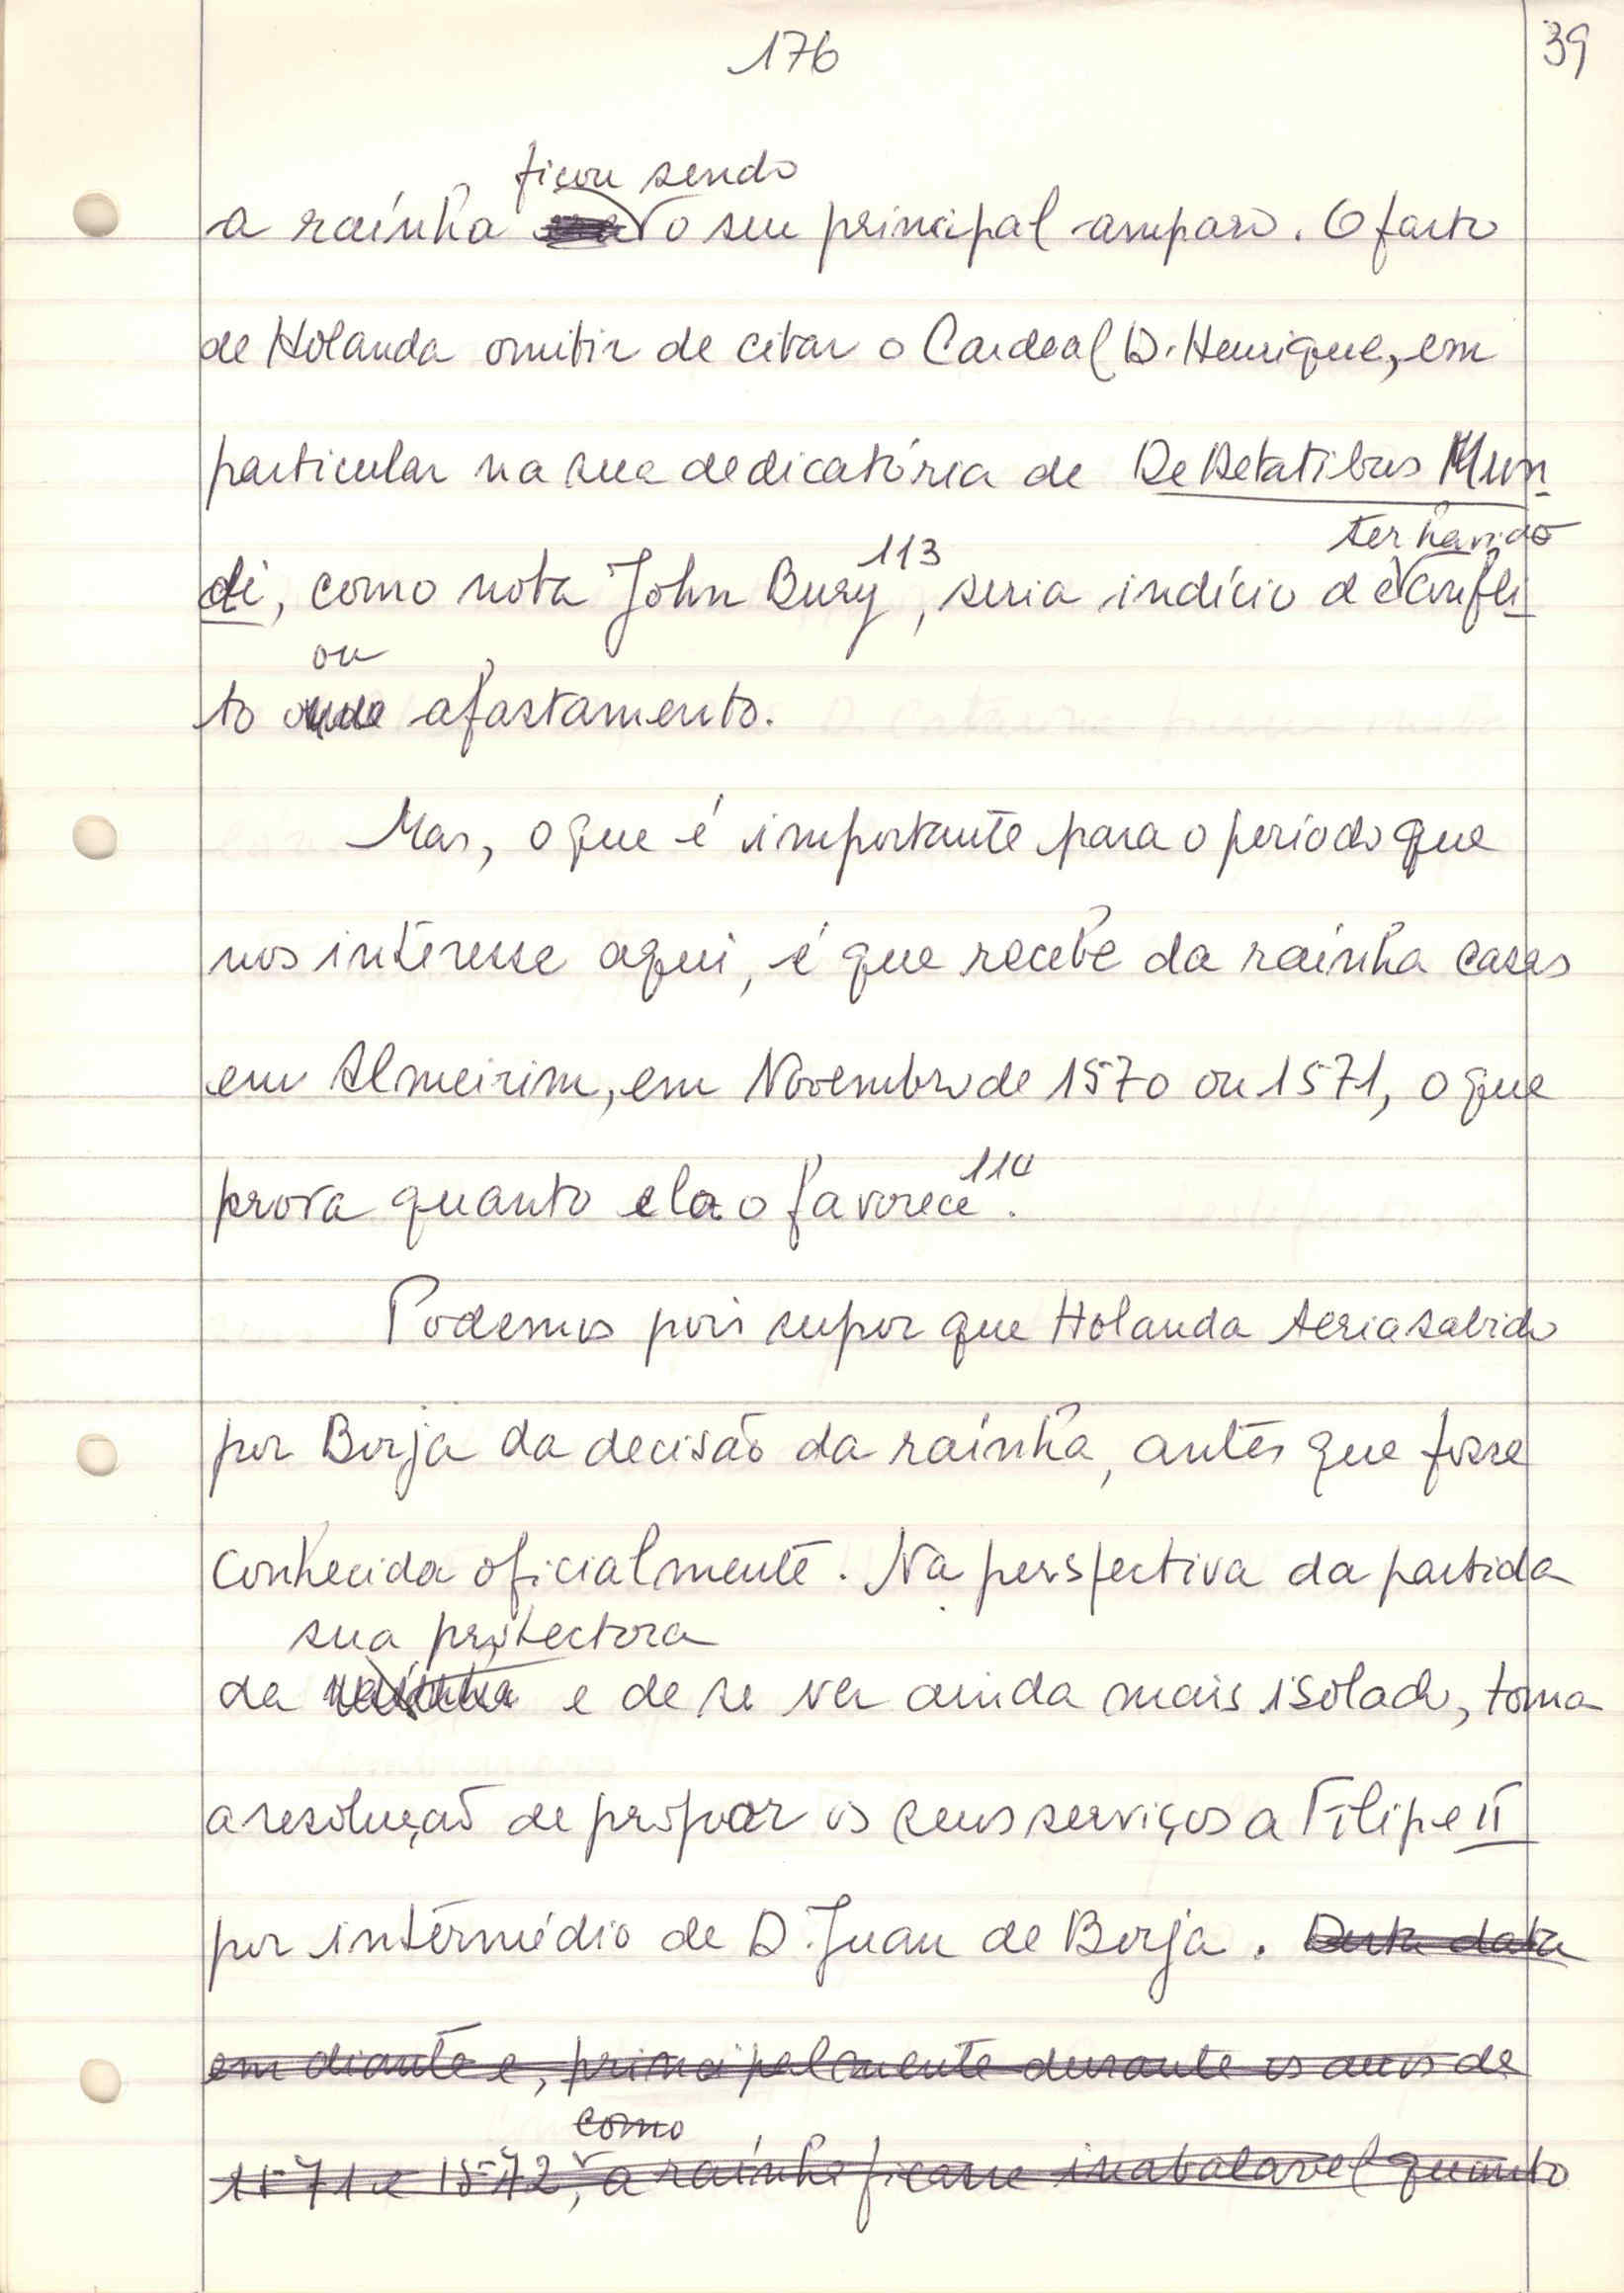 176
39
ficou sendo
a rainha o seu principal amparo. O facto
de Holanda omitir de citar o Cardeal D. Henrique, em
particular na sua dedicatória de De Aetatibus Mun
ter havido
di, como nota John Bury 113, seria indício de confli
ou
to afastamento.
Mas, o que é importante para o periodo que
nos interesse aqui, é que recebe da rainha casas
em Almeirim, em Novembro de 1570 ou 1571, o que
prova quanto ela o favorece 114.
Podemos pois supor que Holanda teria sabido
por Borja da decisão da rainha, antes que fosse
conhecida oficialmente. Na perspectiva da partida
sua protectora
da rainha e de se ver ainda mais isolado, toma
a resolução de propor os seus serviços a Filipe II
por intermédio de D. Juan de Borja. Desta data
em diante e, principalmente durante os anos de
como
1571 e 1572, a rainha ficasse inabalavel quanto